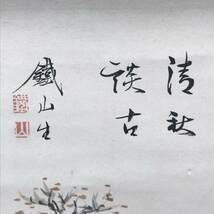 清秋
談古
鐵山生